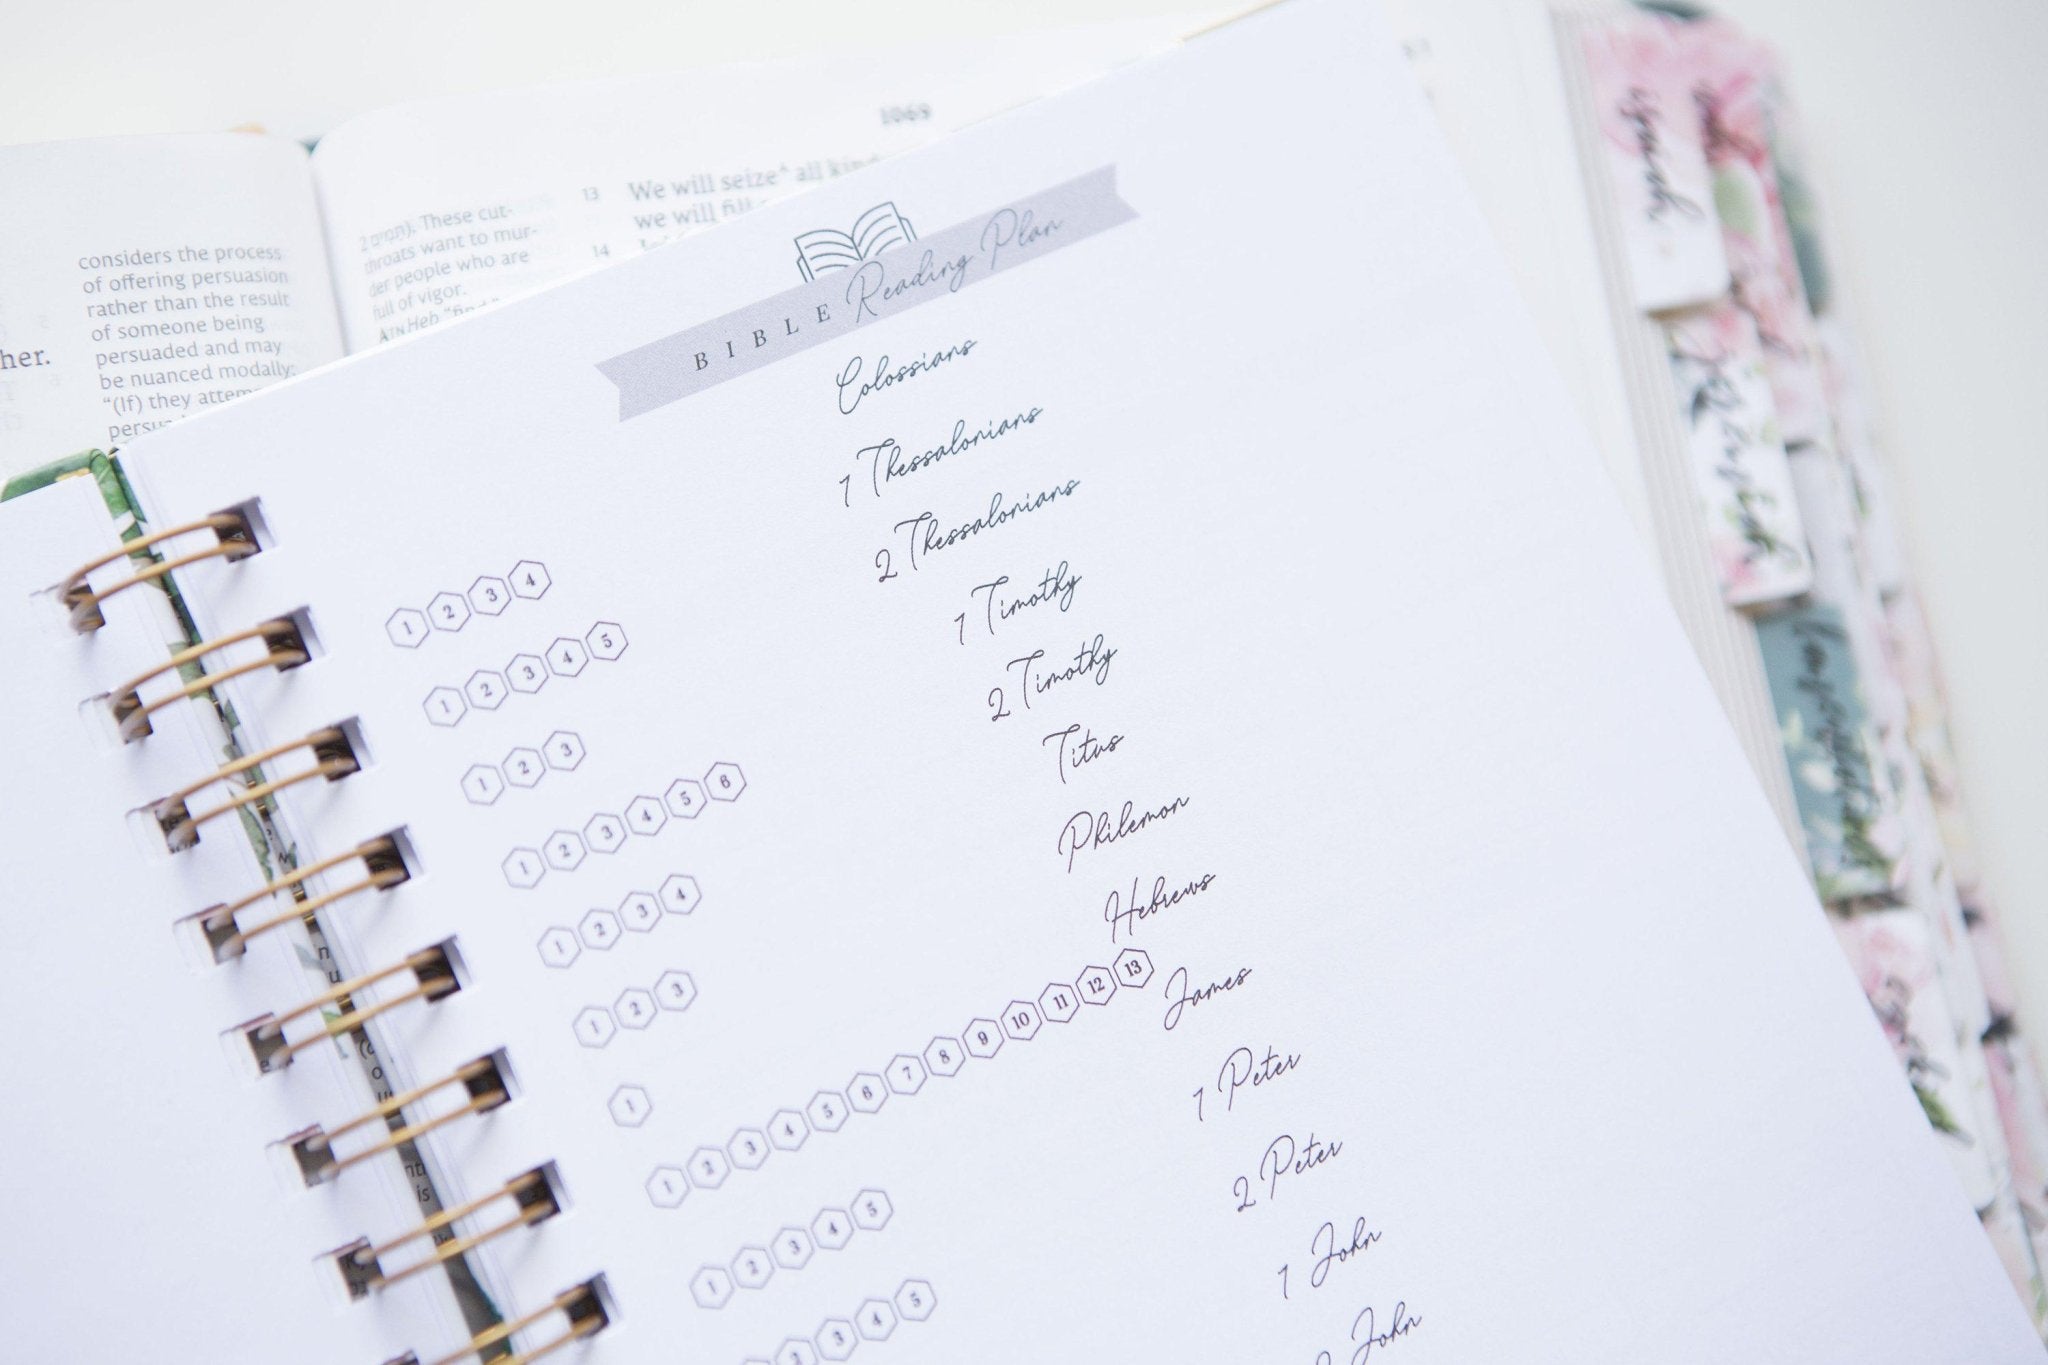 1069
13 We will seize all kind
we will fill
14
These cut-
throats want to mur-
der people who are
full of vigor.
Heb
considers the process
of offering persuasion
rather than the result
of someone being
persuaded and may
be nuanced modally:
“(If) they attem
persu
her.
BIBLE Reading Plan
Colossians
1 2 3 4
1 Thessalonians
1 2 3 4 5
2 Thessalonians
1 2 3
1 Timothy
1 2 3 4 5 6
2 Timothy
1 2 3 4
Titus
1 2 3
Philemon
1
Hebrews
1 2 3 4 5 6 7 8 9 10 11 12 13
James
1 2 3 4 5
1 Peter
2 3 4 5
2 Peter
1 John
John